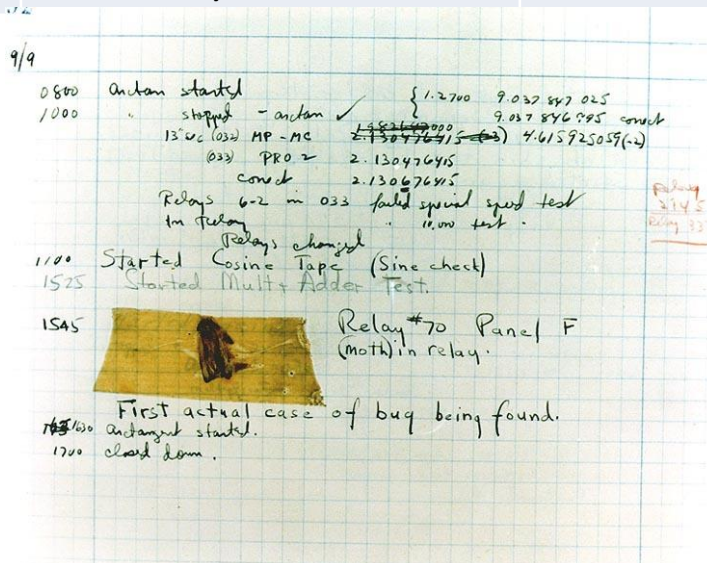 9/9
0800 antan started { 1.2700 9.037 847 025
1000 " stopped - antan ✓ 9.037 846 995 conect
13"uc (032) MP - MC 2.130476415 4.615925059(-2)
(033) PRO 2 2.130476415
conect 2.130676415
Relays 6-2 in 033 failed special speed test
In 10.000 test.
Relays changed
1100 Started Cosine Tape (Sine check)
1525 Started Mult + Adder Test.
1545 Relay #70 Panel F
(moth) in relay.
First actual case of bug being found.
1630 antangent started.
1700 closed down.
Relay